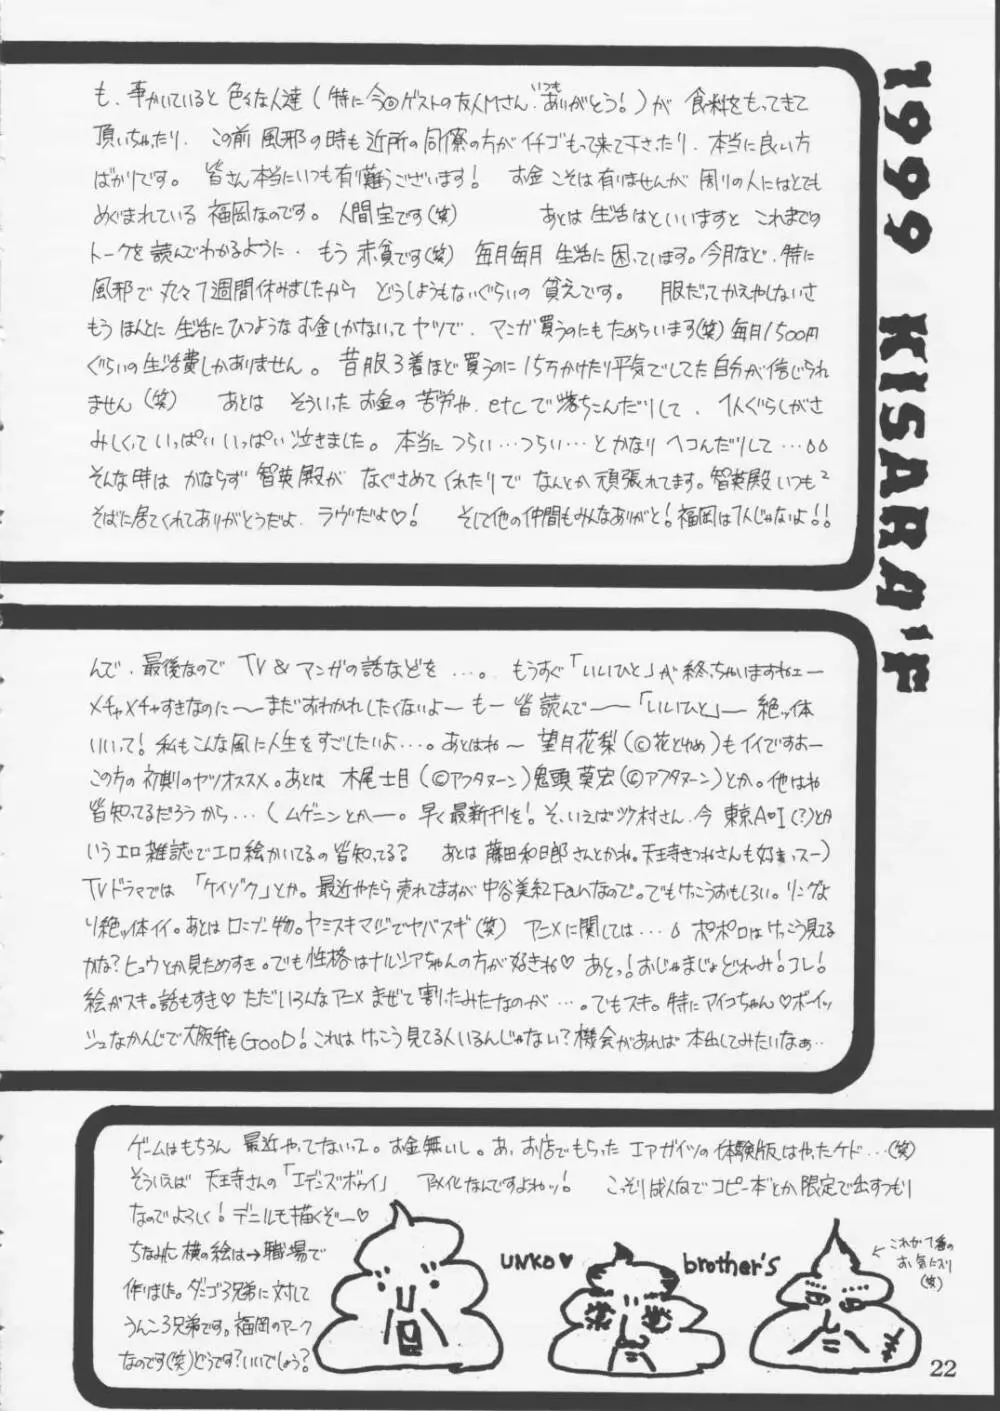 も、事かいていると色々な人達(特に今回ゲストの友人Mさん、いつもありがとう!)が 食料をもってきて
頂いちゃったり、この前 風邪の時も近所の同僚の方がイチゴもって来て下さったり、本当に良い方
ばかりです。皆さん本当にいつも有り難うございます! お金こそは有りませんが 周りの人にはとても
めぐまれている 福岡なのです。人間宝です(笑) あとは 生活はといいますと これまでの
トークを 読んでわかるように、もう 赤貧です(笑) 毎月毎月 生活に困っています。今月など、特に
風邪で丸々1週間休みましたから どうしようもないぐらいの 貧乏です。 服だってかえやしないさ
もう ほんとに 生活にひつような お金しかないってヤツで、マンガ買うのにもためらいます(笑)毎月1500円
ぐらいの生活費しかありません。昔服3着ほど買うのに 15万かけたり平気でしてた自分が信じられ
ません(笑) あとは そういった お金の 苦労や、etcで落ちこんだりして、1人ぐらしがさ
みしくって いっぱい いっぱい 泣きました。本当に つらい…つらい…と かなり ヘコんだりして…
そんな時は かならず 智英殿が なぐさめて くれたりで なんとか頑張れてます。智英殿 いつも²
そばに居てくれてありがとうだよ、ラヴだよ♡! そして他の仲間もみんなありがと!福岡は1人じゃないよ!!
1999 KISARA'F
んで、最後なので TV & マンガの話などを…。 もうすぐ「いいひと」が終っちゃいますねェー
メチャメチャすきなのに〜まだおわかれしたくないよ〜もー 皆読んで――「いいひと」― 絶ッ体
いいって!私もこんな風に人生をすごしたいよ…。あとはね〜 望月花梨(©花とゆめ)もイイですぉー
この方の初期のヤツオススメ。あとは 木尾士目(©アフタヌーン)鬼頭莫宏(©アフタヌーン)とか。他はね
皆知ってるだろうから…(ムゲニンとかー。早く最新刊を!そ、いえばツ村さん、今 東京A・I(?)とか
いうエロ雑誌でエロ絵かいてるの皆知ってる? あとは 藤田和日郎さんとかね。天王寺きつねさんも好きっスー)
TVドラマでは 「ケイゾク」とか。最近やたら売れてますが 中谷美紀Fanなので。でもけっこうおもしろい。リングな
り絶ッ体イイ。あとはロミジュリ物。ヤミスキマジでヤバスギ(笑) アニメに関しては… ポポロはけっこう見てる
かな?ヒュウとか見ためすき。でも性格はナルシアちゃんの方が好きね♡ あとっ!おじゃまじょどれみ!コレ!
絵がスキ。話もすき♡ ただいろんなアニメ まぜて 割ったみたなのが…。でもスキ。特にアイコちゃん♡ボーイッ
シュなかんじで大阪弁もGOOD!これは けっこう 見てる人いるんじゃない?機会があれば 本出してみたいなぁ…
ゲームはもちろん 最近やってないって。お金無いし。あ、お店でもらった エアガイツの体験版はやったケド…(笑)
そういえば 天王寺さんの「エデンズボゥイ」 アニメ化なんですよねッ! こっそりば人向でコピー本とか限定で出すつもり
なのでよろしく!デニルモ描くぞ〜♡
ちなみに横の絵は→職場で
作りました。ダンゴ3兄弟に対して
うんこ3兄弟です。福岡のマーク
なのです(笑)どうです?いいでしょう?
UNKO♡ brother's
これが1番の
お気に入り
(笑)
22